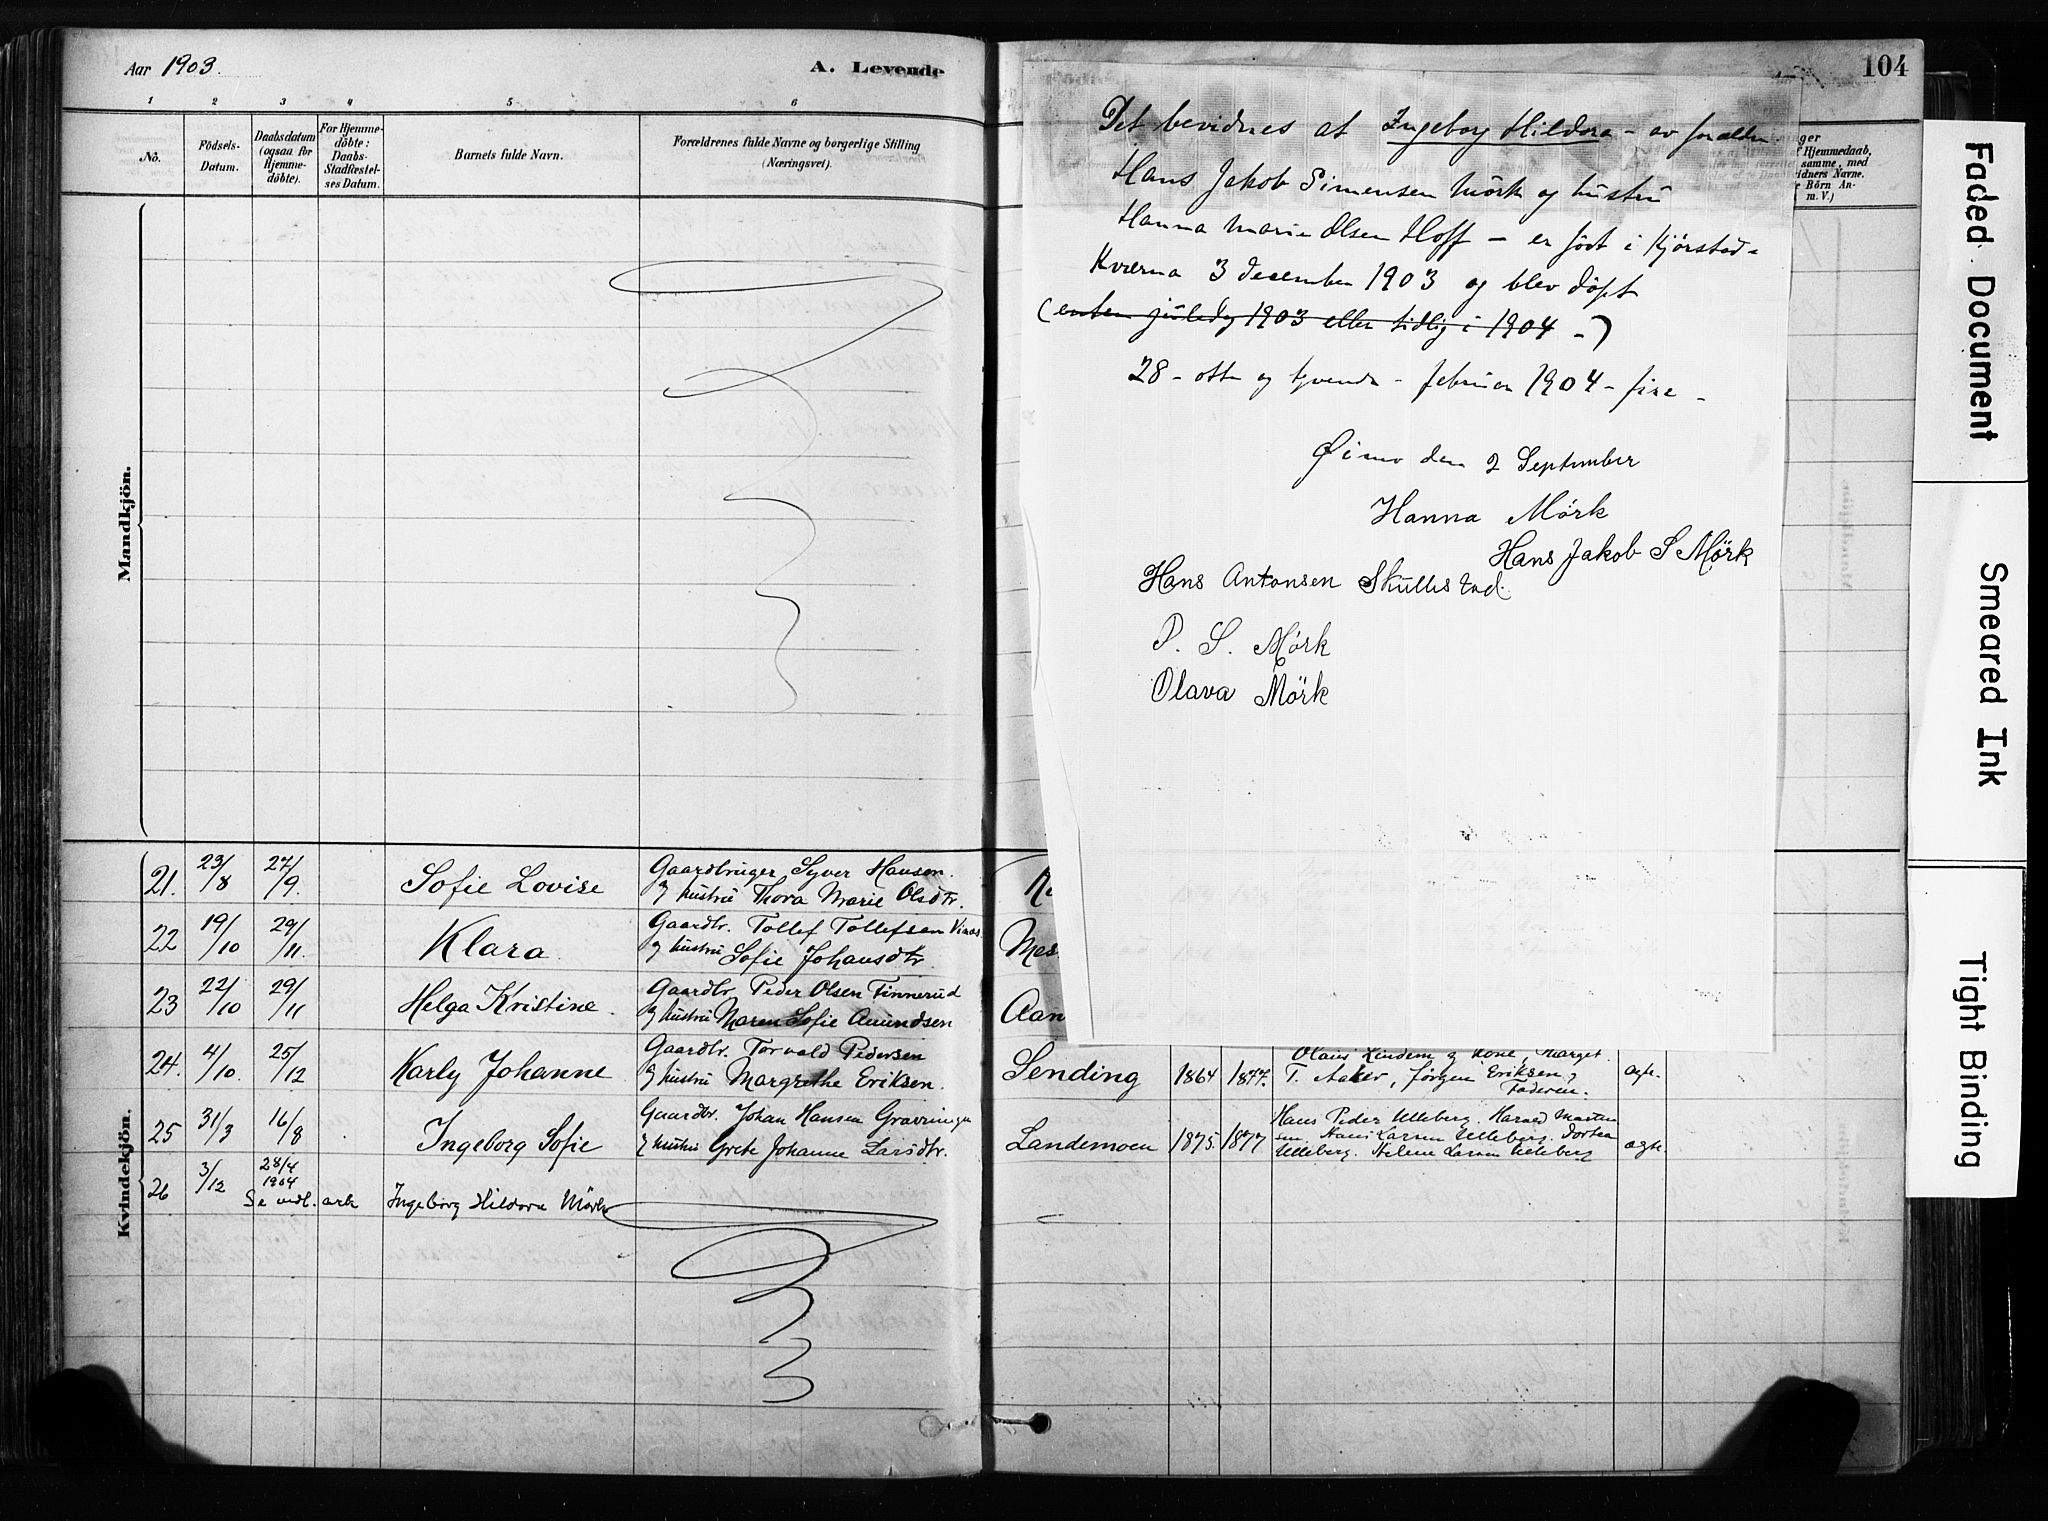 Aar 1903.
A. Levende
104
1 2 3 4 5 6
No.
Födsels-
Datum.
Daabsdatum
(ogsaa for
Hjemme-
döbte).
For Hjemme-
döbte:
Daabs-
Stadfæstel-
ses Datum.
Barnets fulde Navn.
Forældrenes fulde Navne og borgerlige Stilling
(Næringsvei).
Mandkjön.
Kvindekjön.
21. 23/8 27/9. Sofie Lovise
Gaardbruger Syver Hansen.
og hustru Thora Marie Olsdtr.
22 19/10 29/11. Klara
Gaardbr. Tollef Tollefsen
og hustru Sofie Johansdtr
Mes
23 22/10 29/11 Helga Kristine.
Gaardbr Peder Olsen Finnerud
og hustru Maren Sofie Amundsen
Aan
24. 4/10. 25/12 Karly Johanne
Gaardbr. Torvald Pedersen
og hustru Margrethe Eriksen.
Sending 1864 1877.
Olaus Lindem og Kone, Marget
T. Aaker, Jørgen Eriksen,
Faderen.
ægte.
25 31/3 16/8 Ingeborg Sofie
Gaardbr. Johan Hansen
og hustru Grete Johanne Larsdtr.
Landemoen 1875. 1877
Hans Peder Ulleberg. Harald Marten
sen. Hans Larsen Ulleberg. Dortea
Ulleberg. Helene Larsen Ulleberg
ægte.
26 3/12 28/4
1904
Se vedl. ark Ingeborg Hildora Mørk
Det bevidnes at Ingeborg Hildora - av forældre
Hans Jakob Simensen Mörk og hustru
Hanna Marie Olsen Hoff - er født i Kjørstad-
Kværna 3 december 1903 og blev døpt
(enten juledag 1903 eller tidlig i 1904 -)
28 - otte og tyvende - februar 1904 - fire -
den 2 September
Hanna Mørk
Hans Jakob S Mørk
Hans Antonsen Skullestad.
P. S. Mørk
Olava Mörk
nger
Hjemmedaab,
samme, med
idners Navne.
e Börn An-
m. V.)
Faded Document
Smeared Ink
Tight Binding